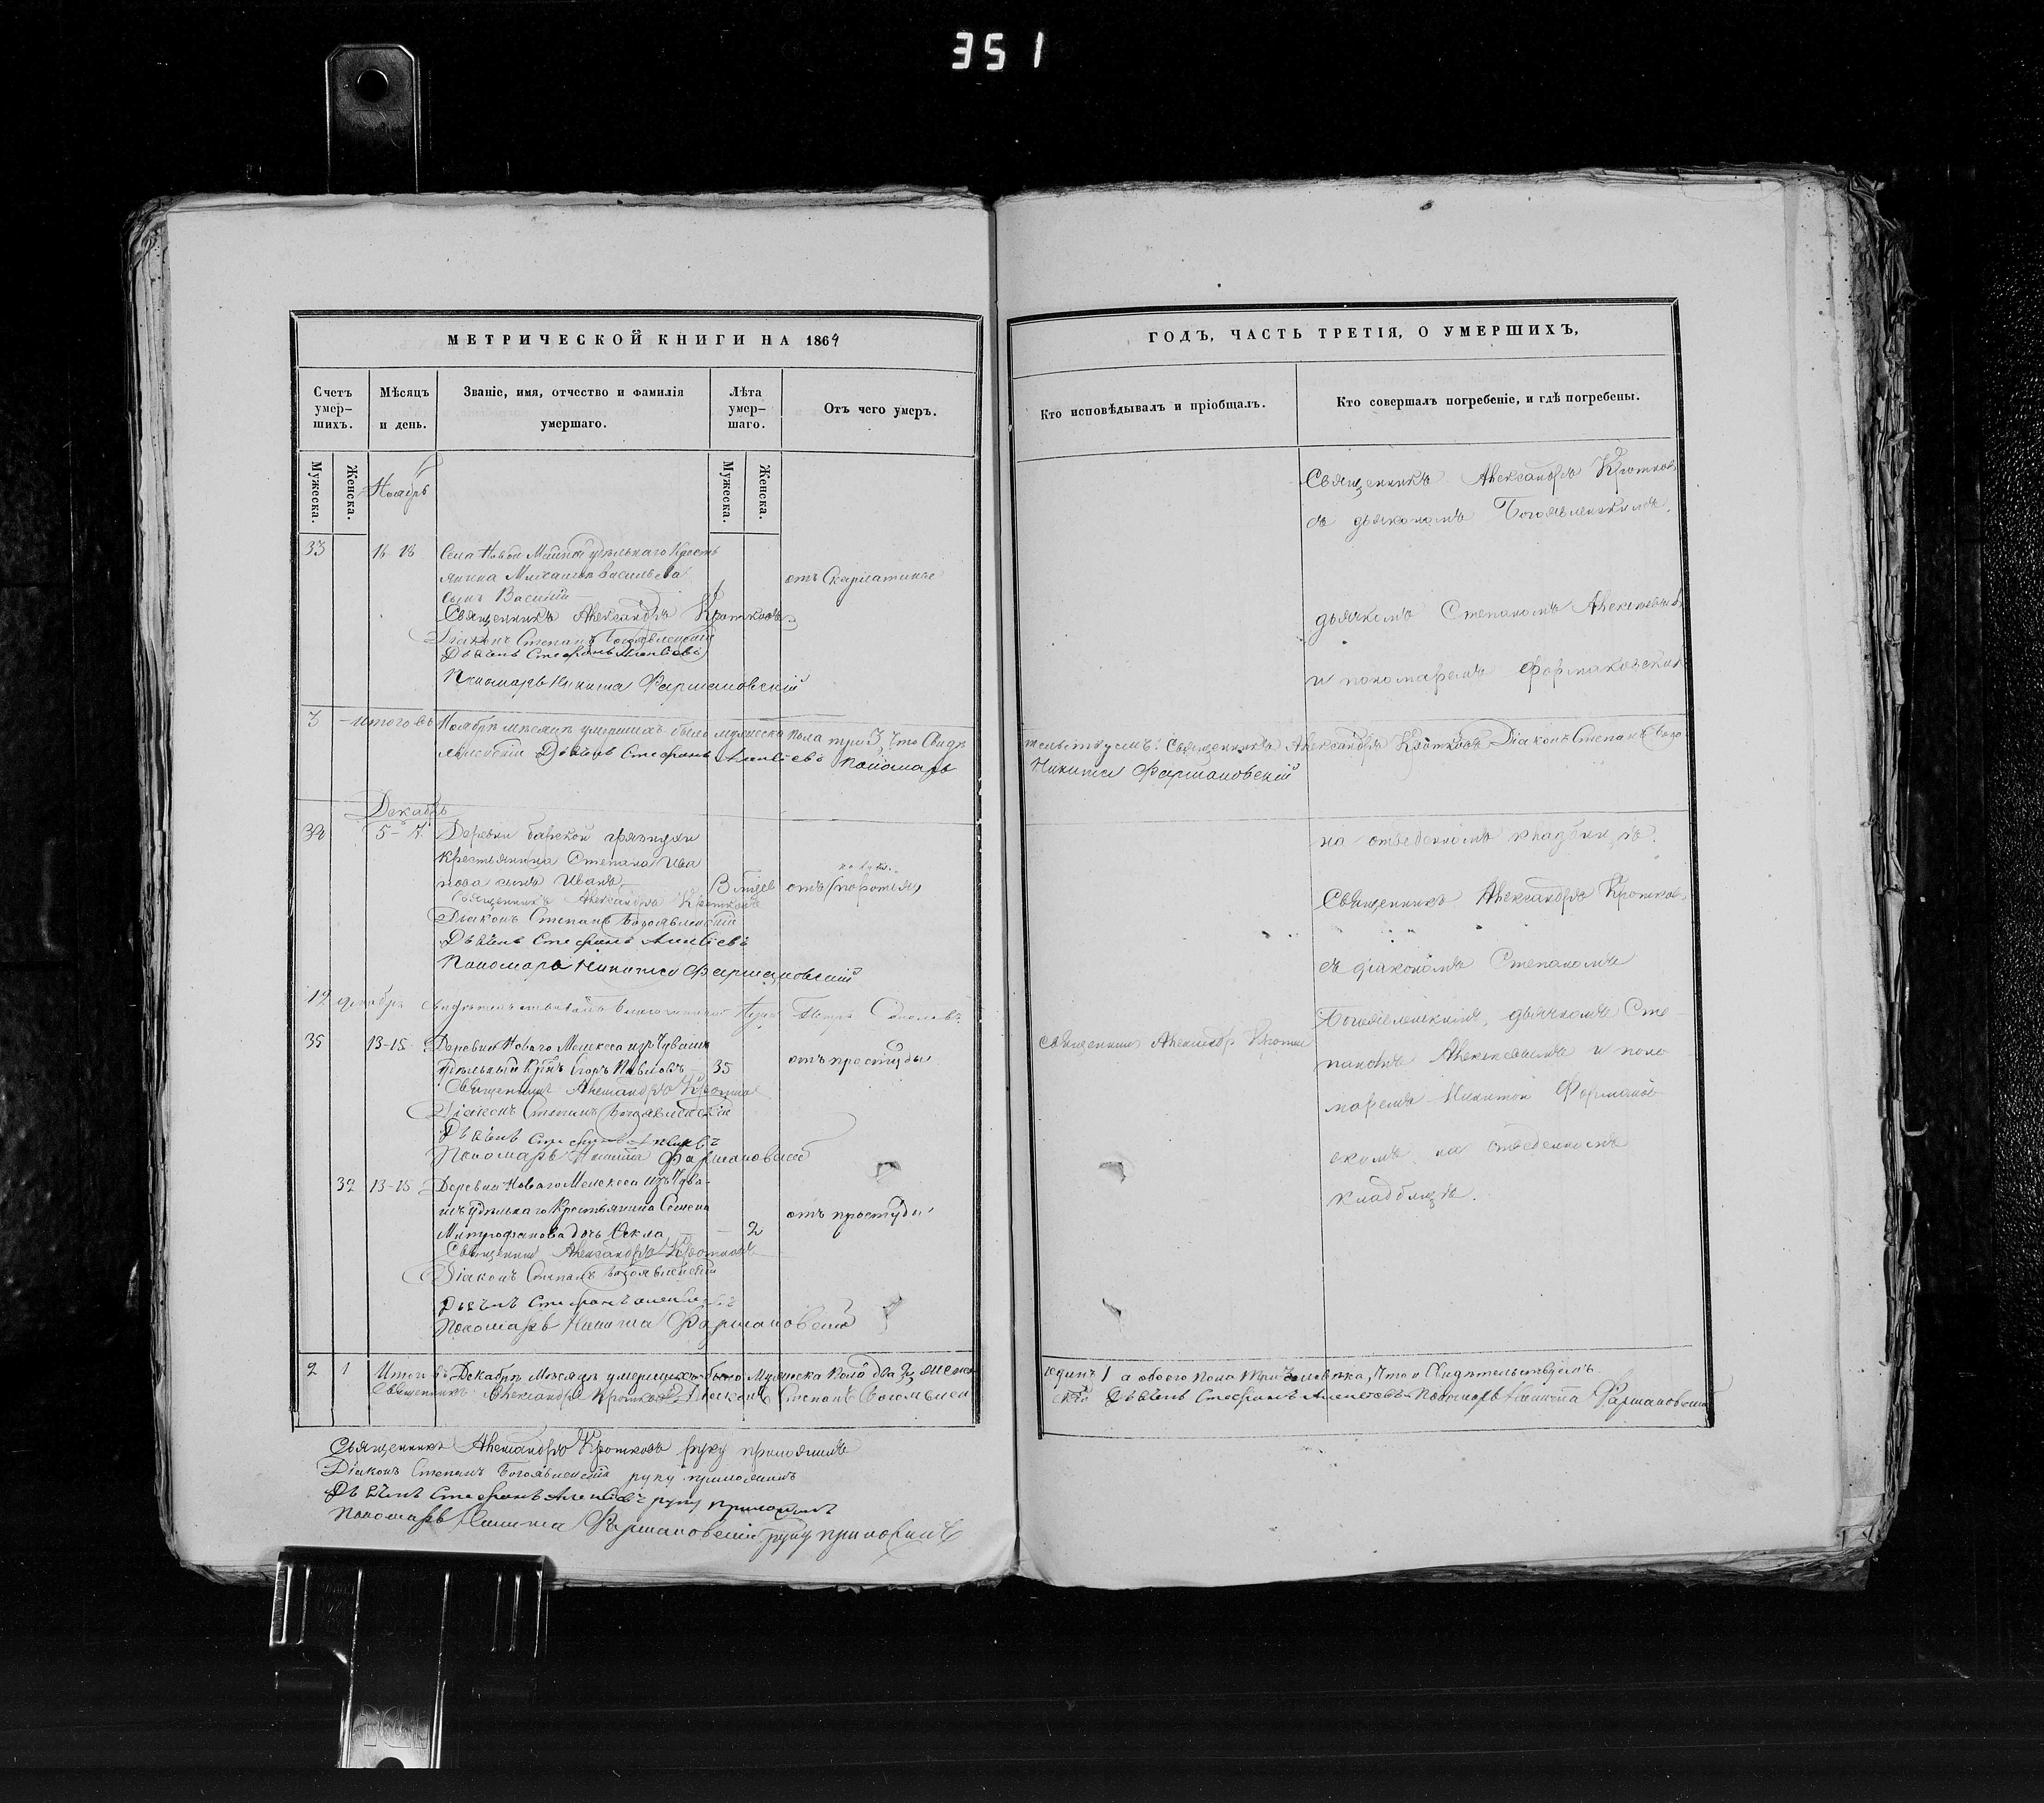 351
МЕТРИЧЕСКОЙ КНИГИ НА 1864
Счетъ умер-шихъ.
Мѣсяцъ и день.
Званіе, имя, отчество и фамилія умершаго.
Лѣта умер-шаго.
Отъ чего умеръ.
Мужеска.
Женска.
Мужеска.
Женска.
Ноябрь
33 16-18 Села Новой Майны удѣльнаго Кресть
янина Михаила Васильева
сынъ Василій
отъ Скарлатины
Священникъ Александръ Кротковъ
Діаконъ Степанъ Богоявленскій
Дьячекъ Стефанъ Алексѣевъ
Пономарь Никита Фармаковскій
3 Итого въ Ноябрѣ мѣсяцѣ умершихъ было мужеска пола три 3, что Свидѣ
Дьячекъ Стефанъ Алексѣевъ Пономарь
Декабрь
34 5-7 Деревни барской грязнухи
крестьянина Степана Ива
нова сынъ Иванъ
отъ
Священникъ Александръ Кротковъ
Дьаконъ Степанъ Богоявленскій
Дьячекъ Стефанъ Алексѣевъ
Пономарь Никита Фармаковскій
19 декабря свидѣтельствовалъ Благочинный Петръ
35 13-15 Деревни Новаго Мелекеса изъ Чувашъ
удѣльный Кр-нъ Егоръ Павловъ 35
отъ простуды
Священникъ Александръ Кротковъ
Діаконъ Степанъ Богоявленскій
Дьячекъ Стефанъ Алексѣевъ
Пономарь Никита Фармаковскій
32 13-15 Деревни Новаго Мелекеса изъ Чува-
шъ удѣльнаго Крестьянина Семена
Митрофанова дочь Ѳекла 2
отъ простуды
Священникъ Александръ Кротковъ
Діаконъ Степанъ Богоявленскій
Дьячекъ Стефанъ Алексѣевъ
Пономарь Никита Фармаковскій
2 1 Итого въ Декабрѣ Мѣсяцѣ умершихъ было Мужеска пола два 2, женска
Священникъ Александръ Кротковъ Діаконъ Степанъ Богоявлен
Священникъ Александръ Кротковъ руку приложилъ
Діаконъ Степанъ Богоявленскій руку приложилъ
Дьячекъ Стефанъ Алексѣевъ руку приложилъ
Пономарь Никита Фармаковскій руку приложилъ
ГОДЪ, ЧАСТЬ ТРЕТІЯ, О УМЕРШИХЪ,
Кто исповѣдывалъ и пріобщалъ.
Кто совершалъ погребеніе, и гдѣ погребены.
Священникъ Александръ Кротковъ
съ дьякономъ Богоявленскимъ,
дьячкомъ Степаномъ Алексѣевымъ
и пономаремъ Фармаковскимъ
тельствуемъ: Священникъ Александръ Кротковъ Діаконъ Степанъ Бого
Никита Фармаковскій
на отведенномъ кладбищѣ.
Священникъ Александръ Кротковъ
съ діакономъ Степаномъ
Богоявленскимъ, дьячкомъ Сте-
паномъ Алексѣевымъ и поно
маремъ Никитой Фармаков
скимъ на отведенномъ
кладбищѣ.
Священникъ Александръ Кротков
одинъ 1 а обоего пола три человѣка, Что и Свидѣтельствуемъ
скій Дьячекъ Стефанъ Алексѣевъ Пономарь Никита Фармаковскій